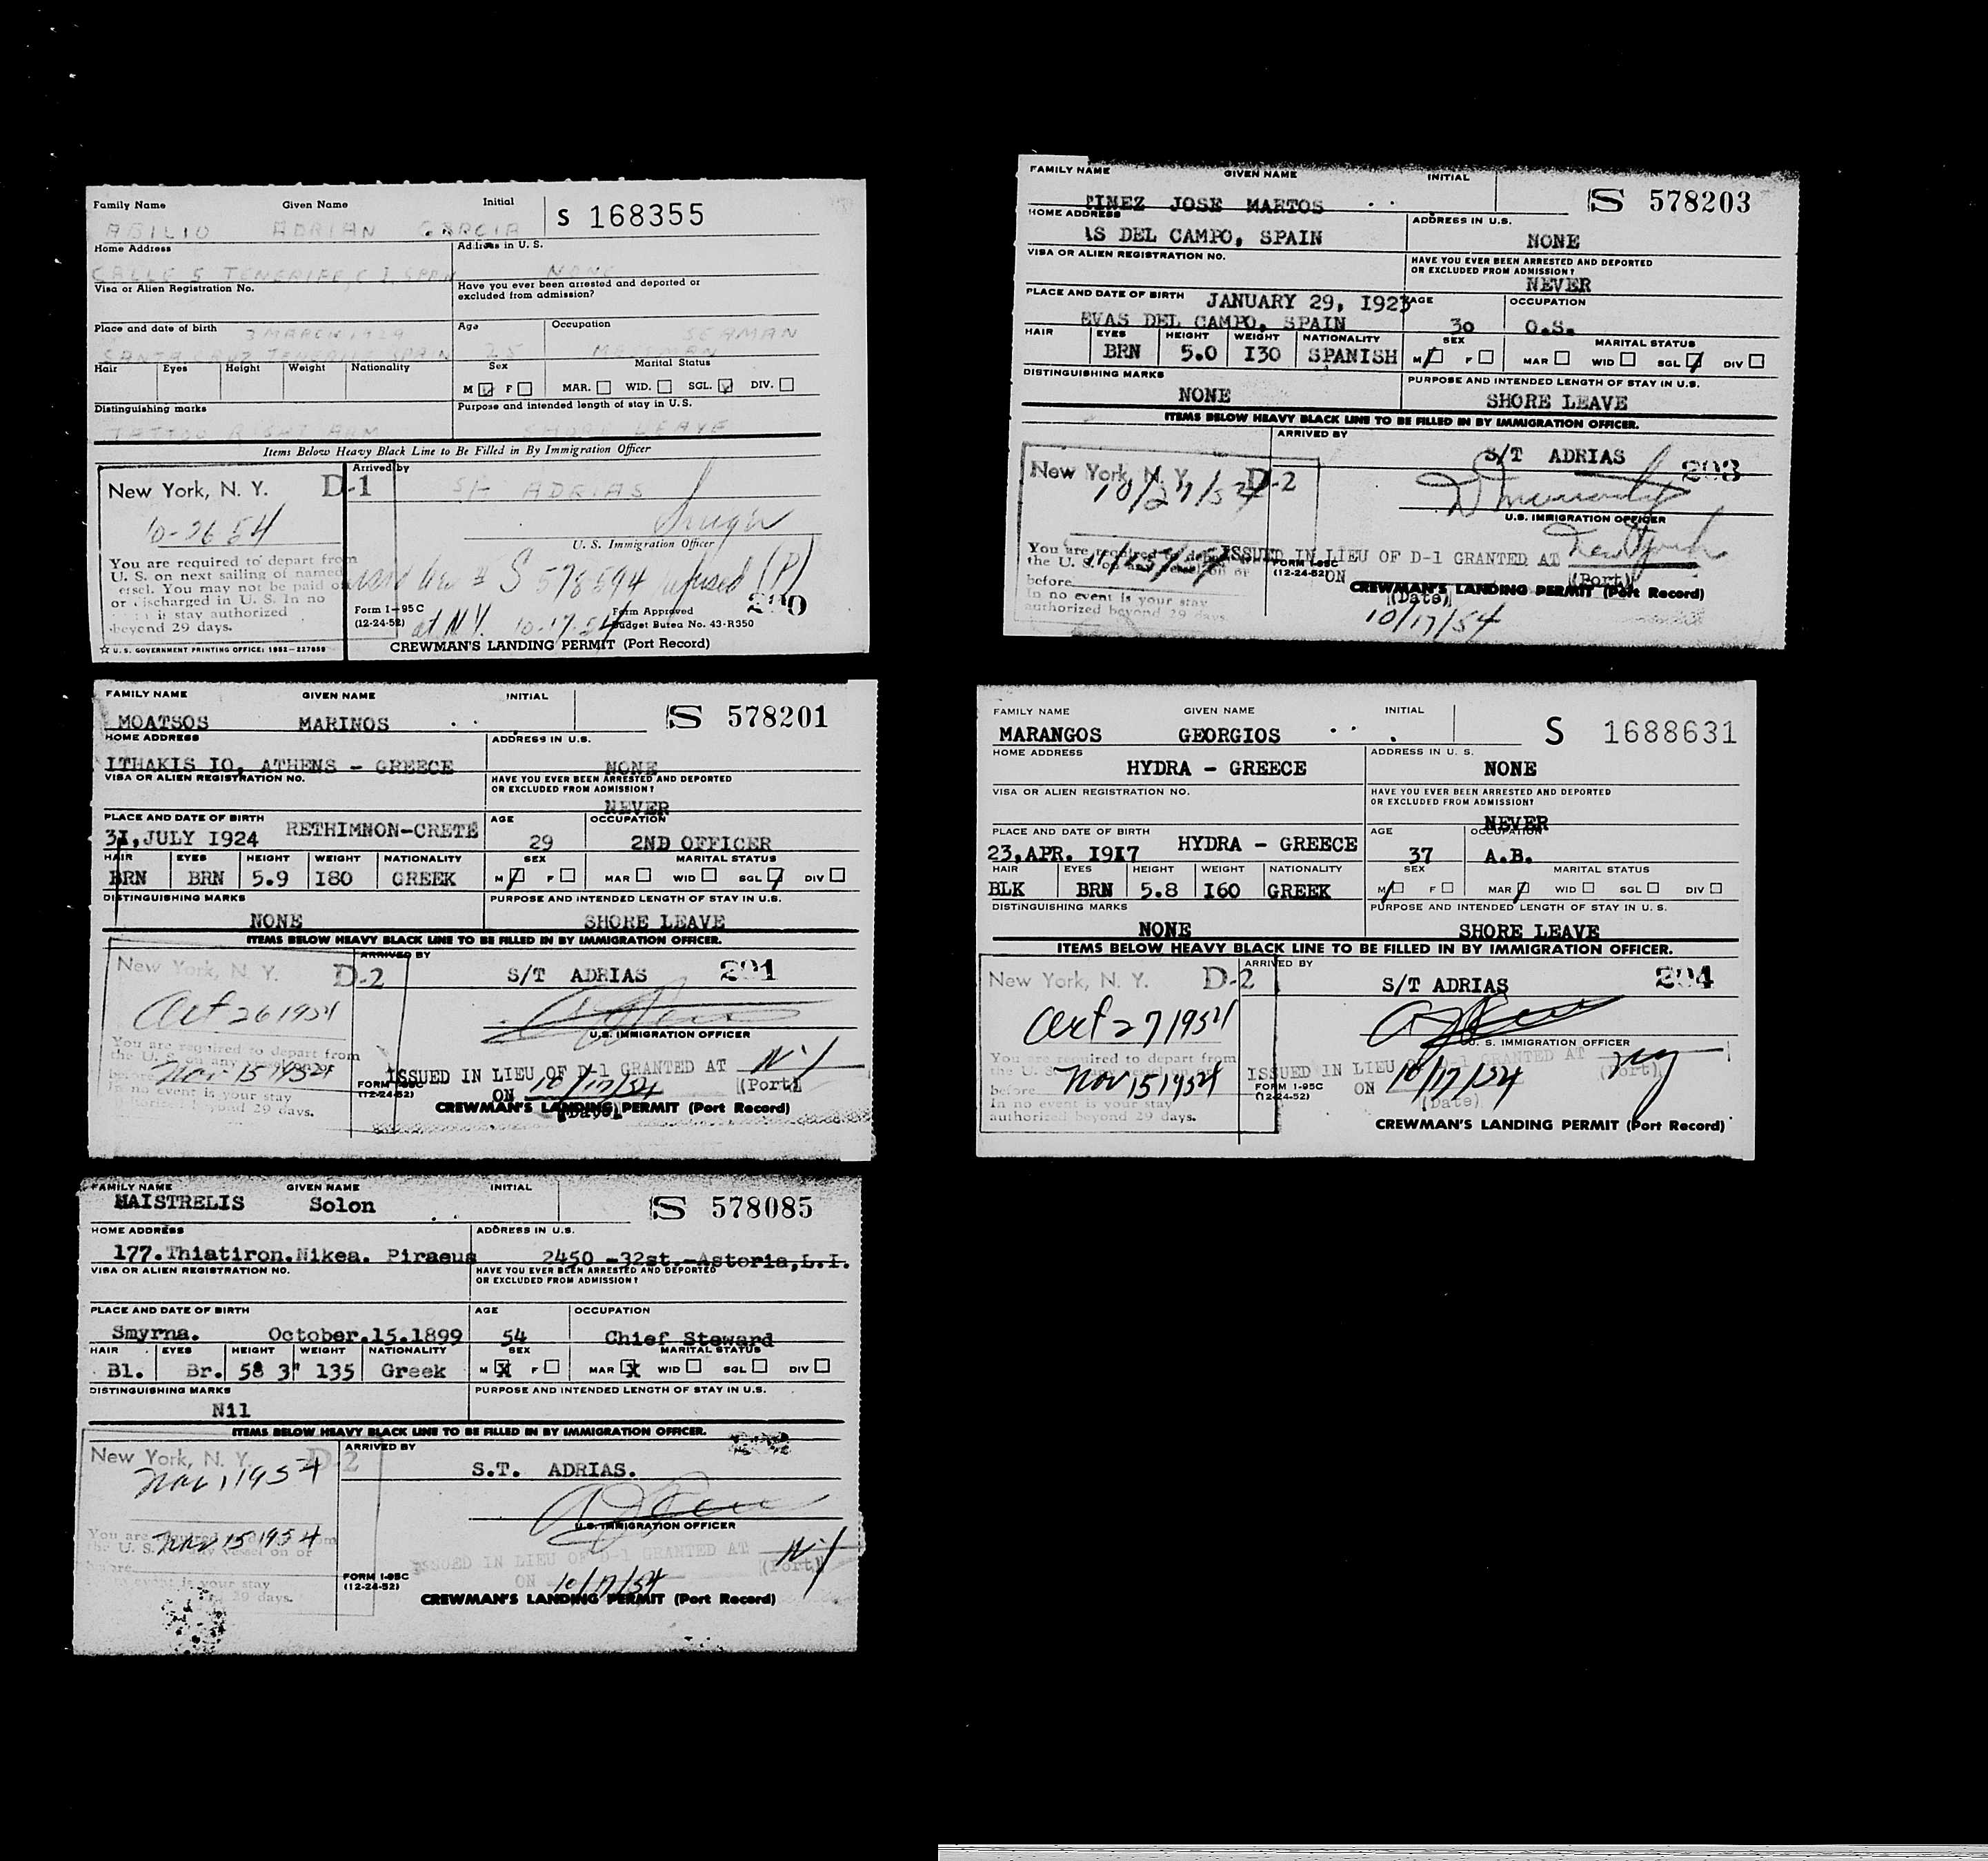 Family Name Given Name Initial
S 168355
ABILIO ADRIAN GARCIA
Home Address Address in U. S.
CALLE 5 TENERIFE, C I, SPAIN NONE
Visa or Alien Registration No. Have you ever been arrested and deported or
excluded from admission?
Place and date of birth 3 MARCH 1929 Age Occupation SEAMAN
SANTA CRUZ TENERIFE SPAIN 25 MESSMAN
Hair Eyes Height Weight Nationality Sex Marital Status
M F MAR. WID. SGL. DIV.
Distinguishing marks Purpose and intended length of stay in U. S.
TATTOO RIGHT ARM SHORE LEAVE
Items Below Heavy Black Line to Be Filled in By Immigration Officer
Arrived by
New York, N. Y. D-1 S/T ADRIAS
10-26 54
U. S. Immigration Officer
You are required to depart from
U. S. on next sailing of named
vessel. You may not be paid off
or discharged in U. S. In no
is stay authorized
beyond 29 days.
S 578594 refused (P)
at N.Y. 10-17-54
290
Form I-95C
(12-24-52)
Form Approved
Budget Bureau No. 43-R350
☆ U. S. GOVERNMENT PRINTING OFFICE: 1952—227859
CREWMAN'S LANDING PERMIT (Port Record)
FAMILY NAME GIVEN NAME INITIAL
S 578203
TINEZ JOSE MARTOS
HOME ADDRESS ADDRESS IN U.S.
AS DEL CAMPO, SPAIN NONE
VISA OR ALIEN REGISTRATION NO. HAVE YOU EVER BEEN ARRESTED AND DEPORTED
OR EXCLUDED FROM ADMISSION?
NEVER
PLACE AND DATE OF BIRTH JANUARY 29, I923 AGE OCCUPATION
EVAS DEL CAMPO, SPAIN 30 O.S.
HAIR EYES HEIGHT WEIGHT NATIONALITY SEX MARITAL STATUS
BRN 5.0 I30 SPANISH M F MAR WID SGL DIV
DISTINGUISHING MARKS PURPOSE AND INTENDED LENGTH OF STAY IN U.S.
NONE SHORE LEAVE
ITEMS BELOW HEAVY BLACK LINE TO BE FILLED IN BY IMMIGRATION OFFICER.
ARRIVED BY
New York, N. Y. D-2 S/T ADRIAS 293
10/27/54
U.S. IMMIGRATION OFFICER
You are required to depart
the U. S. on any vessel on or
before
In no event is your stay
authorized beyond 29 days.
11/15/54
ISSUED IN LIEU OF D-1 GRANTED AT New York
(Port)
FORM I-95C
(12-24-52)
ON
CREWMAN'S LANDING PERMIT (Port Record)
(Date)
10/17/54
FAMILY NAME GIVEN NAME INITIAL
S 578201
MOATSOS MARINOS
HOME ADDRESS ADDRESS IN U.S.
ITHAKIS IO, ATHENS - GREECE NONE
VISA OR ALIEN REGISTRATION NO. HAVE YOU EVER BEEN ARRESTED AND DEPORTED
OR EXCLUDED FROM ADMISSION?
NEVER
PLACE AND DATE OF BIRTH AGE OCCUPATION
31, JULY I924 RETHIMNON-CRETE 29 2ND OFFICER
HAIR EYES HEIGHT WEIGHT NATIONALITY SEX MARITAL STATUS
BRN BRN 5.9 I80 GREEK M F MAR WID SGL DIV
DISTINGUISHING MARKS PURPOSE AND INTENDED LENGTH OF STAY IN U.S.
NONE SHORE LEAVE
ITEMS BELOW HEAVY BLACK LINE TO BE FILLED IN BY IMMIGRATION OFFICER.
ARRIVED BY
New York, N. Y. D-2 S/T ADRIAS 291
Oct 26 1954
U.S. IMMIGRATION OFFICER
You are required to depart from
the U. S. on any vessel on or
before Nov 15 1954
In no event is your stay
authorized beyond 29 days.
ISSUED IN LIEU OF D-1 GRANTED AT NY
(Port)
FORM I-95C
(12-24-52)
ON 10/17/54
(Date)
CREWMAN'S LANDING PERMIT (Port Record)
FAMILY NAME GIVEN NAME INITIAL
S 1688631
MARANGOS GEORGIOS
HOME ADDRESS ADDRESS IN U. S.
HYDRA - GREECE NONE
VISA OR ALIEN REGISTRATION NO. HAVE YOU EVER BEEN ARRESTED AND DEPORTED
OR EXCLUDED FROM ADMISSION?
NEVER
PLACE AND DATE OF BIRTH AGE OCCUPATION
23,APR. I9I7 HYDRA - GREECE 37 A.B.
HAIR EYES HEIGHT WEIGHT NATIONALITY SEX MARITAL STATUS
BLK BRN 5.8 I60 GREEK M F MAR WID SGL DIV
DISTINGUISHING MARKS PURPOSE AND INTENDED LENGTH OF STAY IN U. S.
NONE SHORE LEAVE
ITEMS BELOW HEAVY BLACK LINE TO BE FILLED IN BY IMMIGRATION OFFICER.
ARRIVED BY
New York, N. Y. D-2 S/T ADRIAS 294
Oct 27 1954
U. S. IMMIGRATION OFFICER
You are required to depart from
the U. S. on any vessel on or
before Nov 15 1954
In no event is your stay
authorized beyond 29 days.
ISSUED IN LIEU OF D-1 GRANTED AT NY
(Port)
FORM I-95C
(12-24-52)
ON 10/17/54
(Date)
CREWMAN'S LANDING PERMIT (Port Record)
FAMILY NAME GIVEN NAME INITIAL
S 578085
MAISTRELIS Solon
HOME ADDRESS ADDRESS IN U.S.
177.Thiatiron.Nikea. Piraeus 2450 -32st.-Astoria,L.I.
VISA OR ALIEN REGISTRATION NO. HAVE YOU EVER BEEN ARRESTED AND DEPORTED
OR EXCLUDED FROM ADMISSION?
PLACE AND DATE OF BIRTH AGE OCCUPATION
Smyrna. October.15.1899 54 Chief Steward
HAIR EYES HEIGHT WEIGHT NATIONALITY SEX MARITAL STATUS
Bl. Br. 58 3" 135 Greek M X F MAR X WID SGL DIV
DISTINGUISHING MARKS PURPOSE AND INTENDED LENGTH OF STAY IN U.S.
Nil
ITEMS BELOW HEAVY BLACK LINE TO BE FILLED IN BY IMMIGRATION OFFICER.
ARRIVED BY
New York, N. Y. D-2 S.T. ADRIAS.
Nov 1 1954
U.S. IMMIGRATION OFFICER
You are required from
the U. S. any vessel on or
before
Nov 15 1954
event is your stay
29 days.
ISSUED IN LIEU OF D-1 GRANTED AT NY
(Port)
FORM I-95C
(12-24-52)
ON 10/17/54
CREWMAN'S LANDING PERMIT (Port Record)